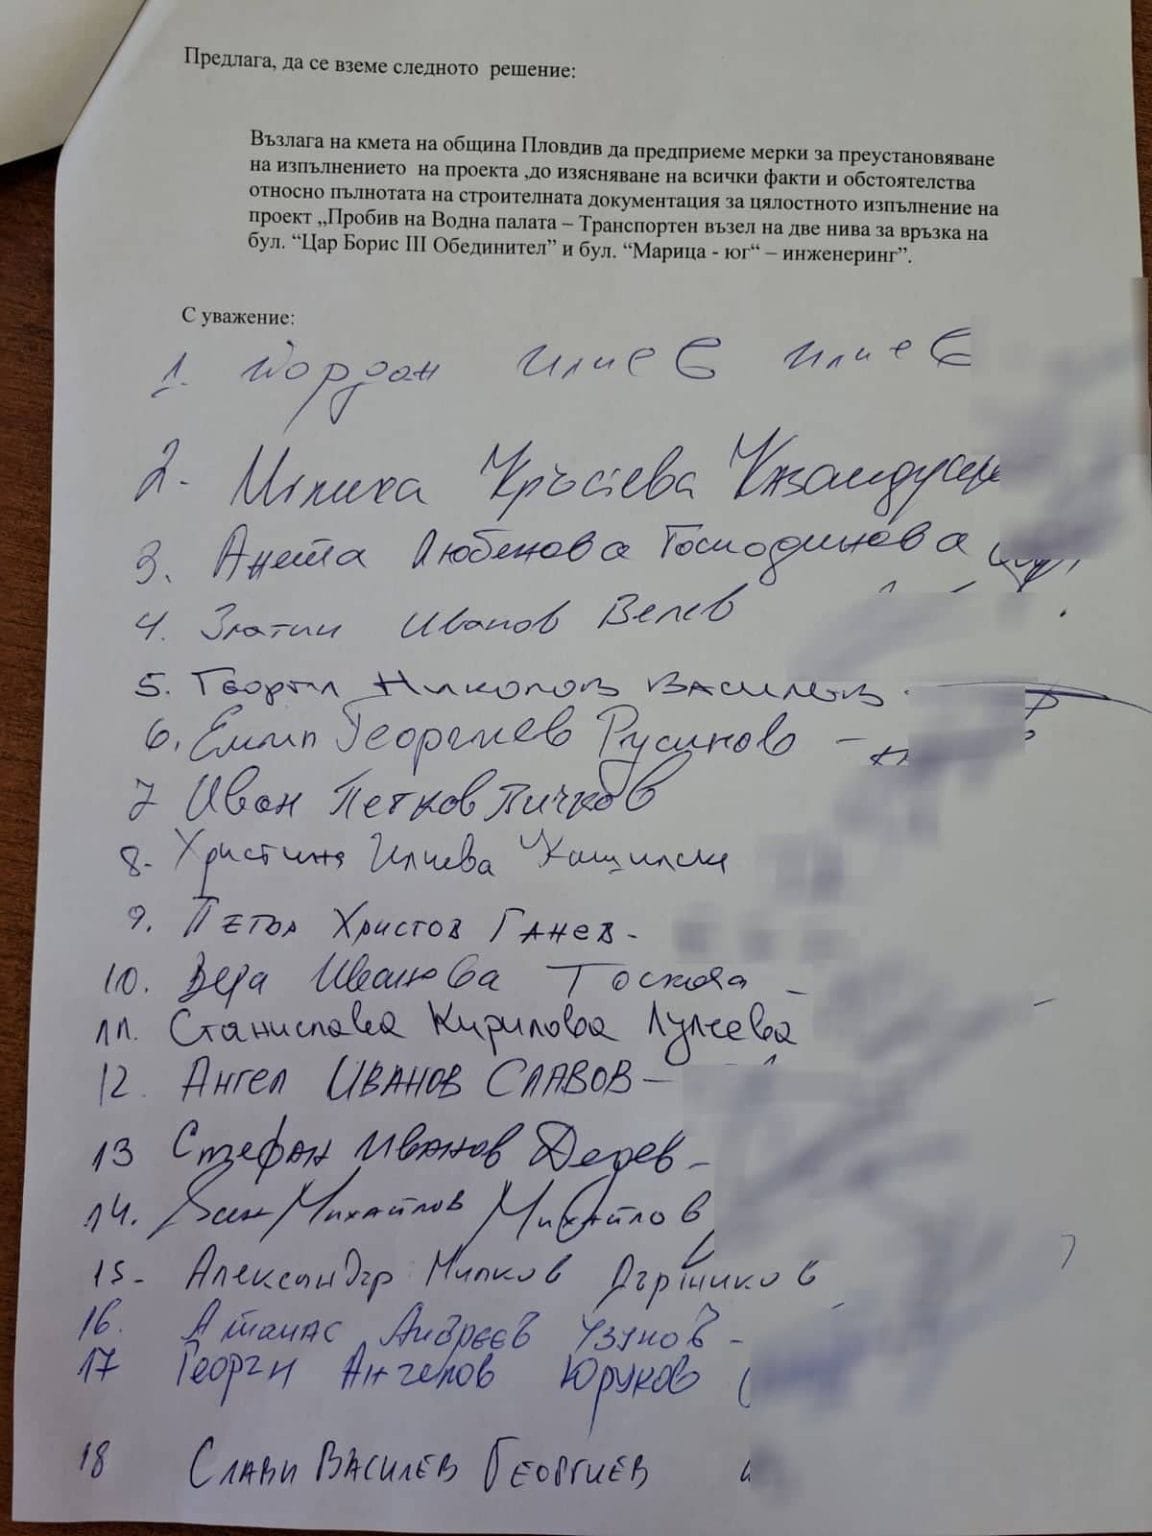 Предлага, да се вземе следното решение:
Възлага на кмета на община Пловдив да предприеме мерки за преустановяване
на изпълнението на проекта ,до изясняване на всички факти и обстоятелства
относно пълнотата на строителната документация за цялостното изпълнение на
проект „Пробив на Водна палата – Транспортен възел на две нива за връзка на
бул. “Цар Борис III Обединител” и бул. “Марица - юг“ – инженеринг”.
С уважение:
1. Йордан Илиев Илиев
2. Кръстева
3. Анета Любенова Господинова
4. Златин Иванов Велев
5. Георги Николов Василев
6. Емил Георгиев Русинов -
7 Иван Петков Пичков
8. Христина Илиева
9. Петър Христов Ганев -
10. Вера Иванова Тоскова -
11. Станислава Кирилова Лулчева
12. Ангел Иванов Славов -
13 Стефан Иванов Дедев -
14. Михайлов Михайлов
15 - Александър Милков Държиков
16. Атанас Андреев Узунов -
17 Георги Ангелов Юруков
18 Слави Василев Георгиев